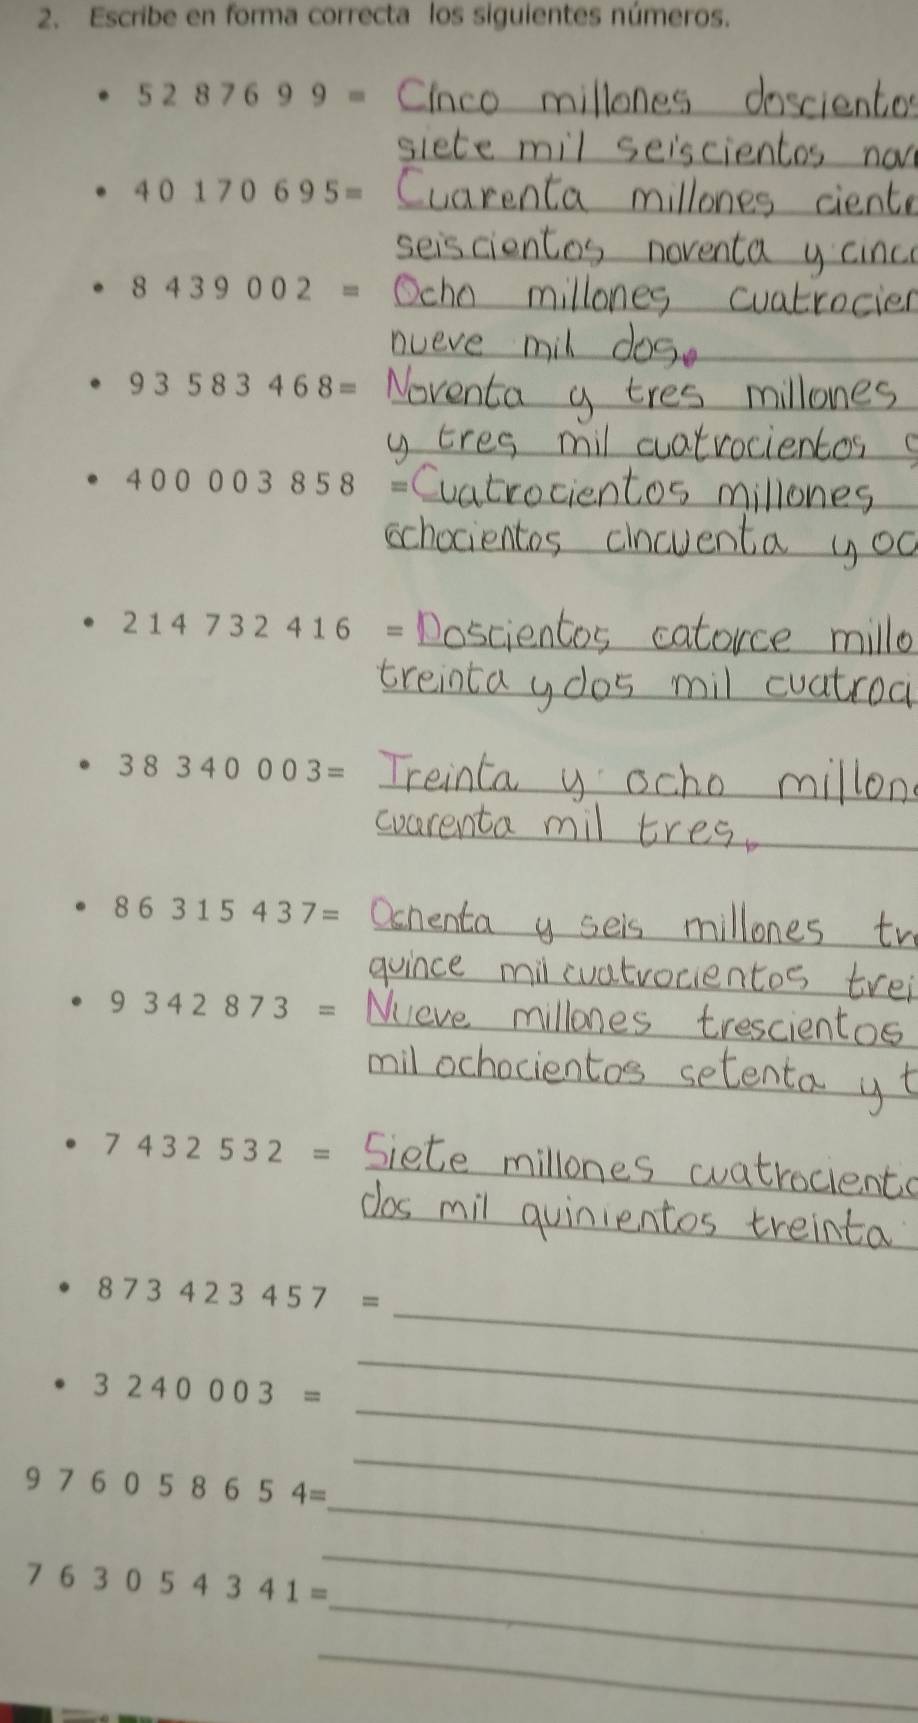 2. Escribe en forma correcta los siguientes números.
• 5287699 = Cinco millones doscientos
siete mil seiscientos
• 40 170 695 = Cuarenta millones
seiscientos noventa y cinco
• 8 439 002 = Ocho millones
nueve mil dos.
• 93 583 468 = Noventa y tres millones
y tres mil cuatrocientos
• 400 003 858 = Cuatrocientos millones
ochocientos cincuenta y oc
• 214 732 416 = Doscientos catorce millo
treinta y dos mil cuatroci
• 38 340 003 = Treinta y ocho millon
cuarenta mil tres.
• 86 315 437 = Ochenta y seis millones tr
quince mil cuatrocientos trei
• 9 342 873 = Nueve millones trescientos
mil ochocientos setenta y t
• 7 432 532 = Siete millones cuatrociento
dos mil quinientos treinta
• 873 423 457 =
• 3 240 003 =
976058654=
763054341=